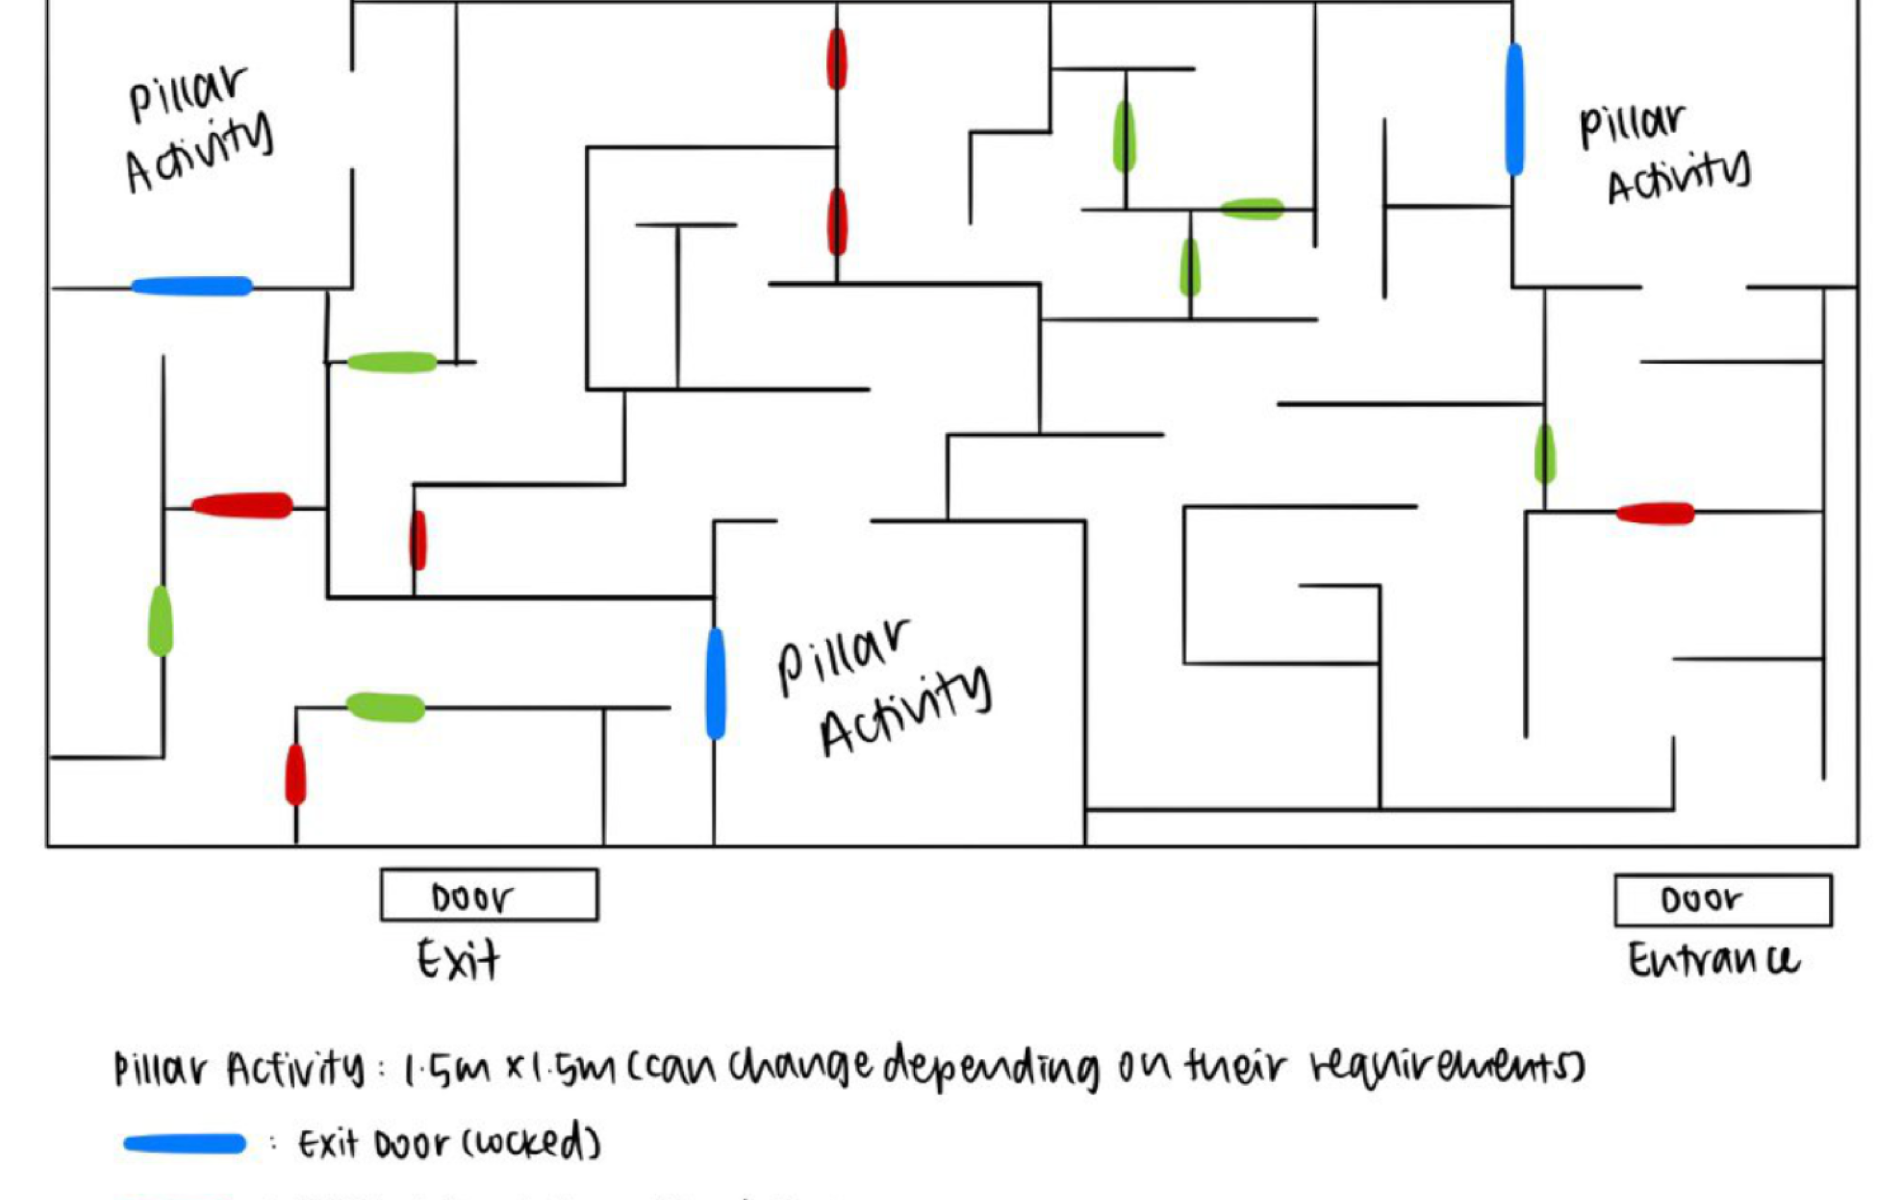 Pillar
Activity
Pillar
Activity
Pillar
Activity
Door
Exit
Door
Entrance
Pillar Activity : 1.5m x 1.5m (can change depending on their requirements)
: Exit Door (locked)